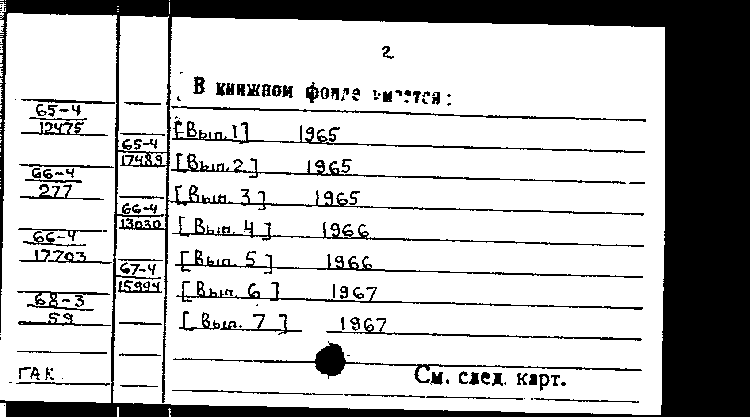 2
В книжном фонде имеется:
65-4
12475
[Вып. 1] 1965
65-4
17489
[Вып. 2] 1965
66-4
277
[Вып. 3] 1965
66-4
13030
[Вып. 4] 1966
66-4
17703
[Вып. 5] 1966
67-4
15994
[Вып. 6] 1967
68-3
59
[Вып. 7] 1967
ГАК
См. след. карт.